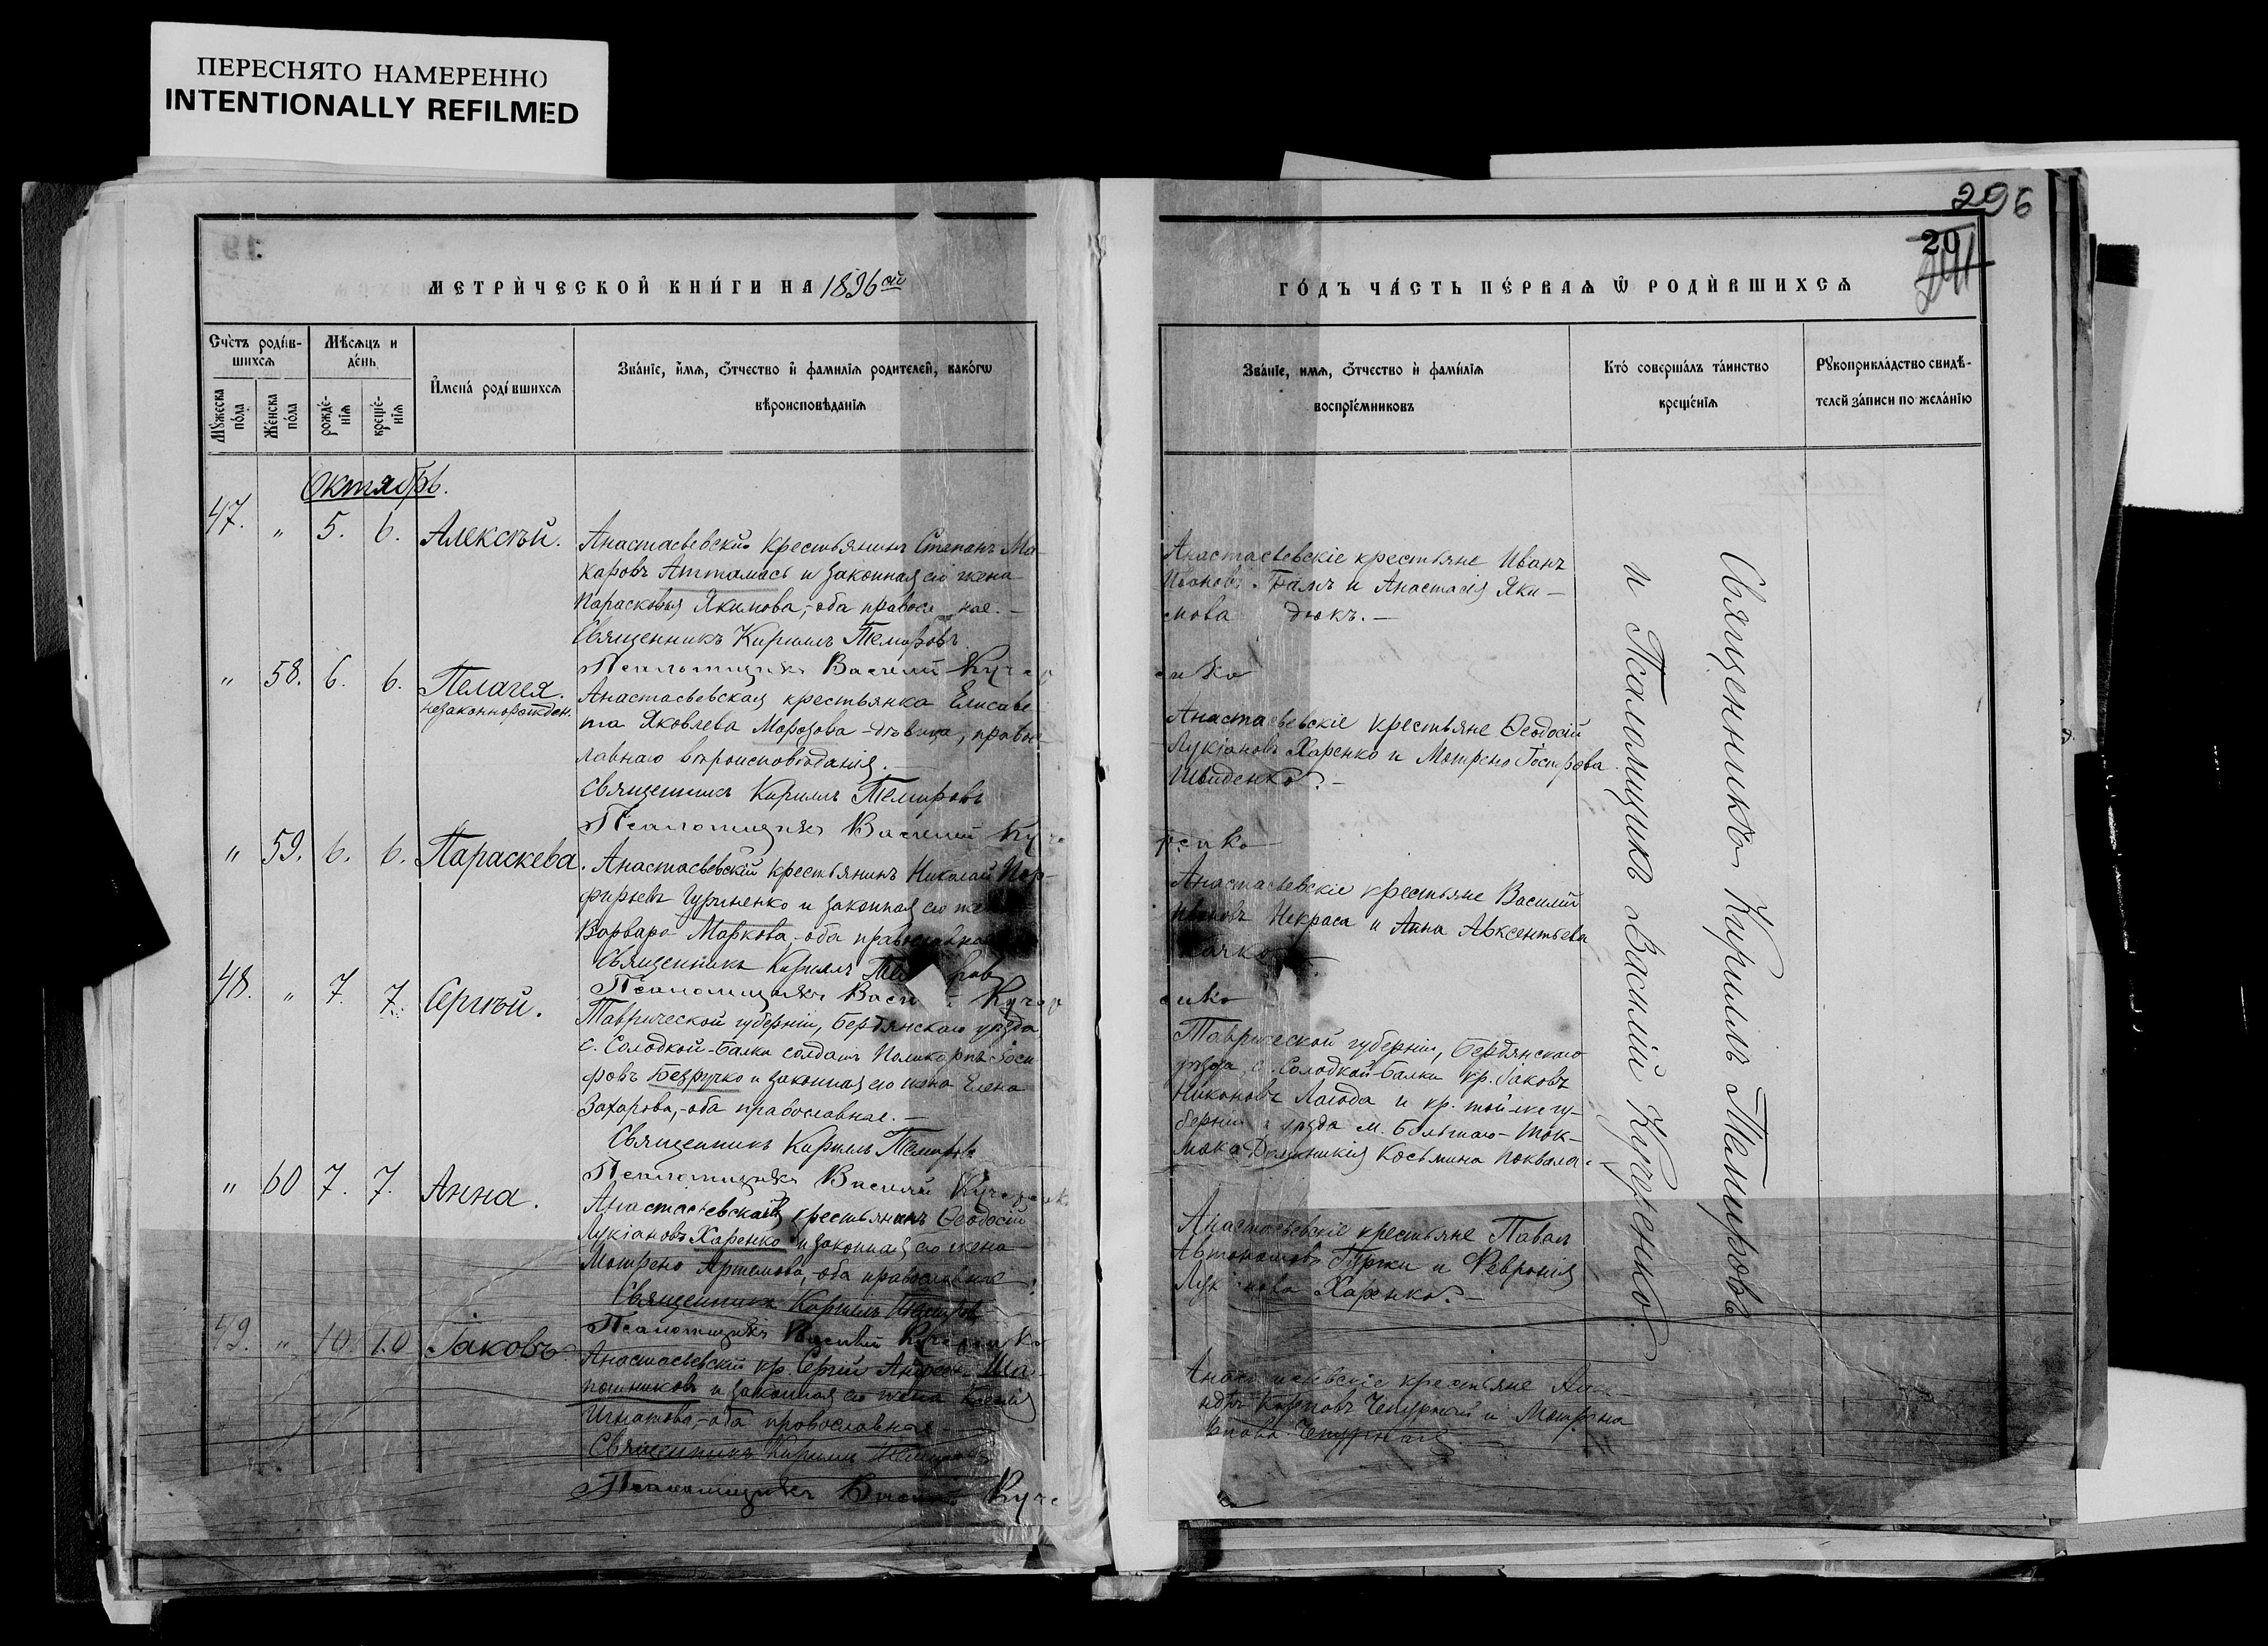 ПЕРЕСНЯТО НАМЕРЕННО
INTENTIONALLY REFILMED
296
20
МЕТРИ́ЧЕСКОЙ КНИ́ГИ НА 1896ой
ГО́ДЪ ЧА́СТЬ ПЕ́РВАѦ Ѿ РОДИ́ВШИХСѦ
Сче́тъ роди́в-
шихсѧ
Мѣсѧцъ и
де́нь
Мꙋ́жеска
по́ла
Же́нска
по́ла
рожде́-
нїѧ
креще́-
нїѧ
И҆мена̀ роди́вшихсѧ
Зва́нїе, и҆́мѧ, ѻ҆́тчество и҆ фами́лїѧ роди́телей, како́гѡ
вѣроисповѣ́данїѧ
Зва́нїе, и҆́мѧ, ѻ҆́тчество и҆ фами́лїѧ
воспрїе́мниковъ
Кто̀ соверша́лъ та́инство
креще́нїѧ
Рꙋкоприкла́дство свидѣ́-
телей за́писи по жела́нїю
Октябрь.
47. " 5. 6. Алексѣй.
Анастасьевскій крестьянинъ Степанъ Ма-
каровъ Аттамась и законная его жена
Парасковья Якимова, оба правосл ные.-
Священникъ Кириллъ Темировъ
Псаломщикъ Василий Кучер
Анастасьевскіе крестьяне Иванъ
Ивановъ и Анастасія Яки-
мова дюкъ.-
енко
" 58. 6. 6. Пелагея.
незаконнорожден.
Анастасьевская крестьянка Елисаве
та Яковлева Морозова - дѣвица, право
лавнаго вѣроисповѣданія.-
Священникъ Кириллъ Темировъ
Псаломщикъ Василий Куче
Анастасьевскіе крестьяне Ѳеодосій
Лукіановъ Харенко и Мотрена Іосифова
Швиденко.-
ренко
" 59. 6. 6. Параскева.
Анастасьевскій крестьянинъ Николай Пор-
фирьевъ Гуриненко и законная его жена
Варвара Маркова, оба православные
Священникъ Кириллъ Те ровъ
Псаломщикъ Васи й Кучер
Анастасьевскіе крестьяне Василій
Ивановъ Некраса и Анна Авксентьева
енко
48. " 7. 7. Сергѣй.
Таврической губерніи, Бердянскаго уѣзда,
с. Солодкой-Балки солдатъ Поликарпъ Іоси
фовъ Безручко и законная его жена Елена
Захарова, оба православные.-
Священникъ Кириллъ Темировъ
Псаломщикъ Василий Кучеренко
Таврической губерніи, Бердянскаго
уѣзда, с. Солодкой-Балки кр. Іаковъ
Никоновъ Лагода и кр. той-же гу-
берніи и уѣзда м. Большаго-Ток-
мака Домникія Косьмина
" 60 7. 7. Анна.
Анастасьевскій крестьянинъ Ѳеодосій
Лукіановъ Харенко и законная его жена
Мотрена Артемова, оба православные.
Священникъ Кириллъ Темировъ
Псаломщикъ Василий Кучеренко
Анастасьевскіе крестьяне Павелъ
Автономовъ Гуржи и Феврония
Лук нова Харенко.-
49. " 10. 10 Іаковъ.
Анастасьевскій кр. Сергій Андреевъ Ша-
пошниковъ и законная его жена Ксенія
Игнатова, оба православные
Священникъ Кириллъ Темировъ
Псаломщикъ Василий Куче
Анаст сьевскіе крестьяне
Карповъ Чепурный и Мотрена
Чепурная.-
Священникъ Кириллъ Темировъ
и Псаломщикъ Василій Кучеренко.